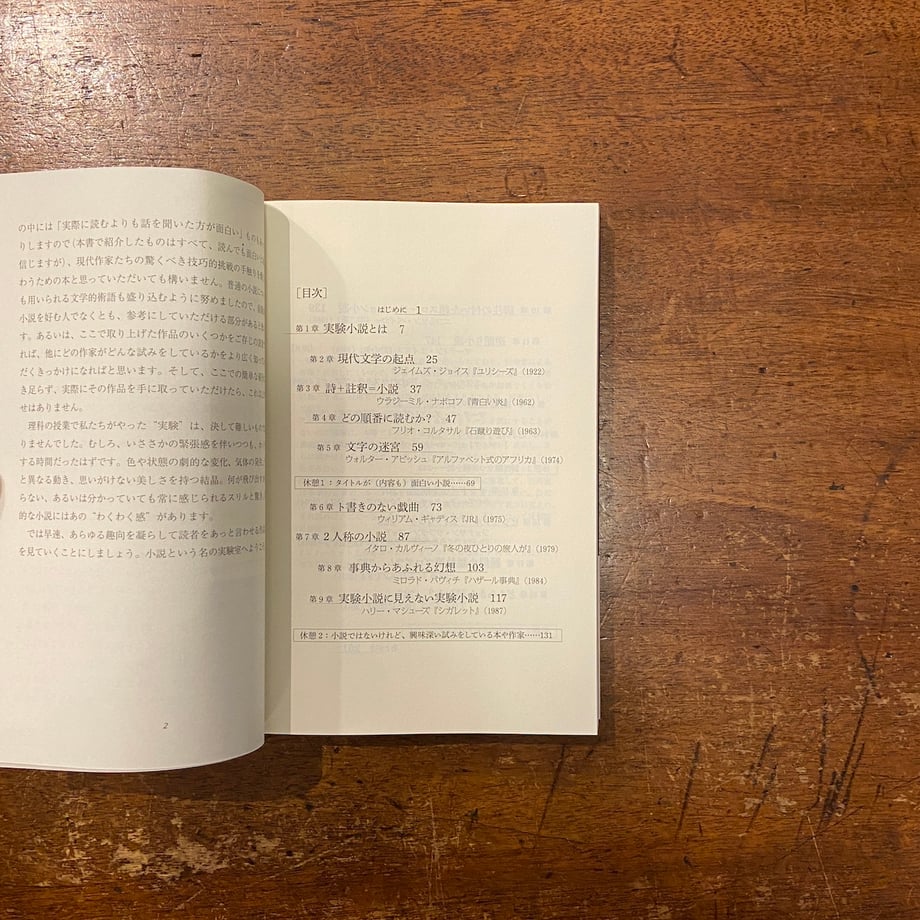 の中には「実際に読むよりも話を聞いた方が面白い」もの
りしますので（本書で紹介したものはすべて、読んでも面白い
信じますが）、現代作家たちの驚くべき技巧的挑戦の手触りを
わうための本と思っていただいても構いません。普通の小説に
も用いられる文学的術語も盛り込むように努めましたので、
小説を好む人でなくとも、参考にしていただける部分があると
す。あるいは、ここで取り上げた作品のいくつかをご存じの
れば、他にどの作家がどんな試みをしているかをより広く知っ
だくきっかけになればと思います。そして、ここでの簡単な
き足らず、実際にその作品を手に取っていただけたら、これに
せはありません。
理科の授業で私たちがやった“実験”は、決して難しいもの
りませんでした。むしろ、いささかの緊張感を伴いつつも、
する時間だったはずです。色や状態の劇的な変化、気体の発
と異なる動き、思いがけない美しさを持つ結晶。何が飛び出す
らない、あるいは分かっていても常に感じられるスリルと驚き。
的な小説にはあの“わくわく感”があります。
では早速、あらゆる趣向を凝らして読者をあっと言わせる
を見ていくことにしましょう。小説という名の実験室へようこそ
2
［目次］
はじめに 1
第1章 実験小説とは 7
第2章 現代文学の起点 25
ジェイムズ・ジョイス『ユリシーズ』（1922）
第3章 詩＋註釈＝小説 37
ウラジーミル・ナボコフ『青白い炎』（1962）
第4章 どの順番に読むか？ 47
フリオ・コルタサル『石蹴り遊び』（1963）
第5章 文字の迷宮 59
ウォルター・アビッシュ『アルファベット式のアフリカ』（1974）
休憩1：タイトルが（内容も）面白い小説……69
第6章 ト書きのない戯曲 73
ウィリアム・ギャディス『JR』（1975）
第7章 2人称の小説 87
イタロ・カルヴィーノ『冬の夜ひとりの旅人が』（1979）
第8章 事典からあふれる幻想 103
ミロラド・パヴィチ『ハザール事典』（1984）
第9章 実験小説に見えない実験小説 117
ハリー・マシューズ『シガレット』（1987）
休憩2：小説ではないけれど、興味深い試みをしている本や作家……131